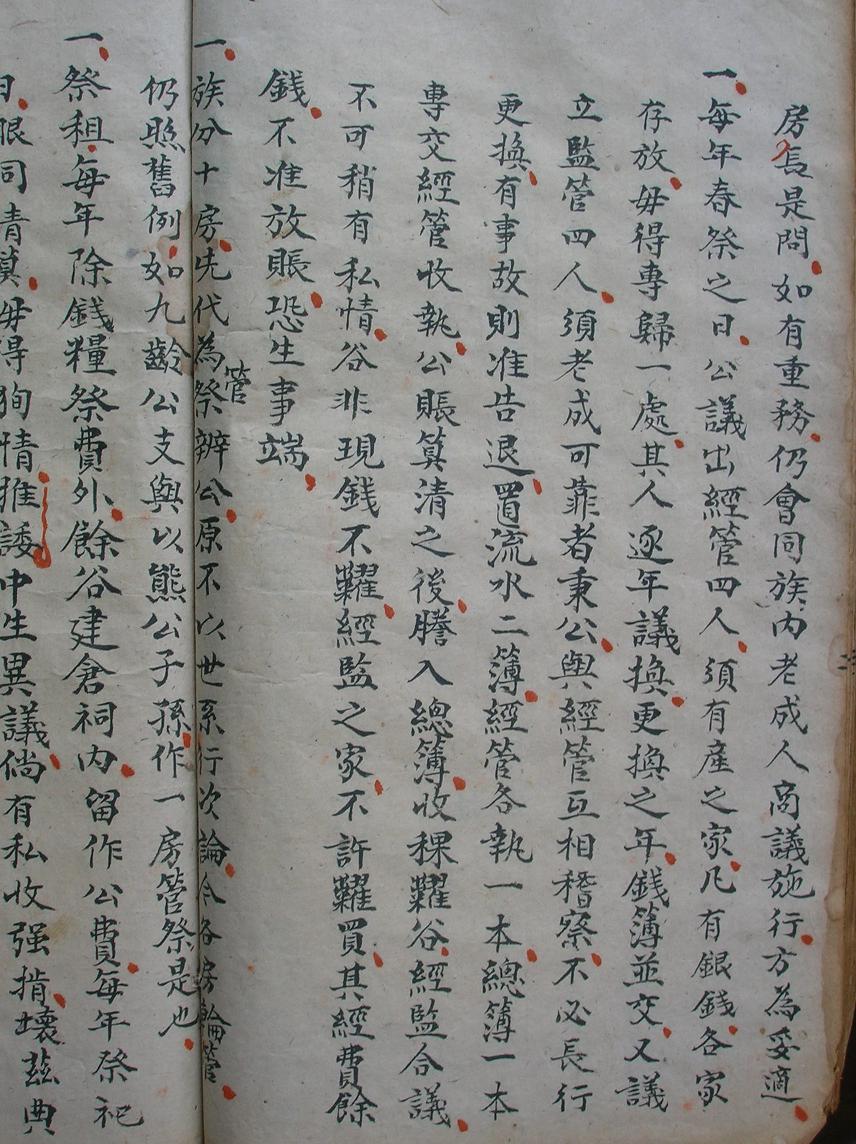 房長是問如有重務仍會同族内老成人商議施行方為妥適
一每年春祭之日公議出經管四人須有産之家凡有銀錢各家
存放毋得專歸一處其人逐年議換更換之年錢簿並交又議
立監管四人須老成可靠者秉公與經管互相稽察不必長行
更換有事故則准告退置流水二簿經管各執一本總簿一本
專交經管收執公賬算清之後謄入總簿收稞糶谷經監合議
不可稍有私情谷非現錢不糶經監之家不許糶買其經費餘
錢不准放賬恐生事端
一族分十房先代為管祭辦公原不以世系行次論今各房輪管
仍照舊例如九齡公支與以熊公子孫作一房管祭是也
一祭租每年除錢糧祭費外餘谷建倉祠内留作公費每年祭祀
日眼同清算毋得狥情推諉中生異議倘有私收强掯壞茲典